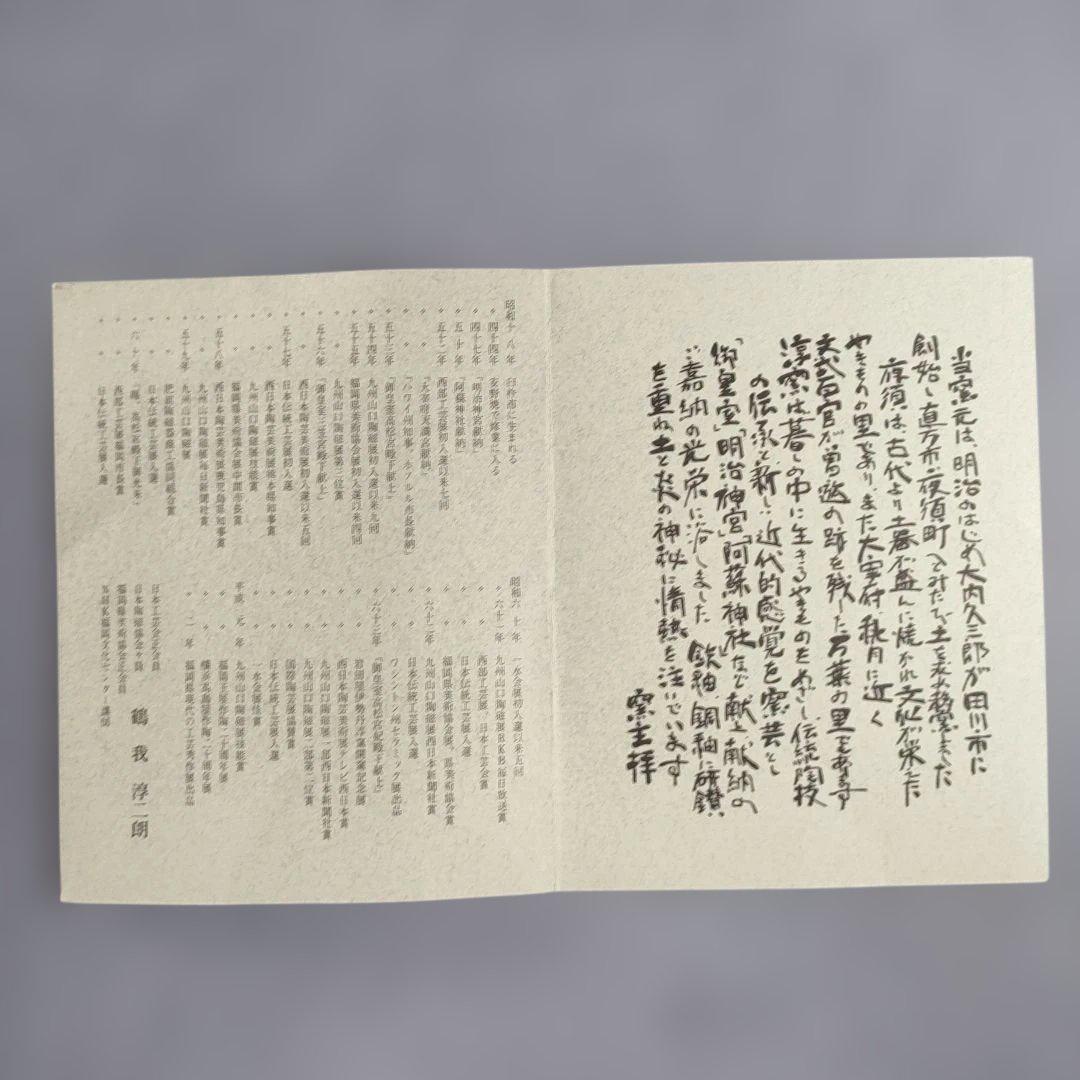 当窯元は、明治のはじめ大内久三郎が田川市に
創始し直方市、夜須町へとみたび土を求め移窯しました
夜須は古代より土器が盛んに焼かれ文化が栄えた
やきものの里であり、また大宰府、秋月に近く
文武百官が曽遊の跡を残した万葉の里であります
淳窯は暮しの中に生きるやきものをめざし、伝統陶技
の伝承と新しい近代的感覚を窯芸とし
「御皇室」「明治神宮」「阿蘇神社」など献上、献納の
ご嘉納の光栄に浴しました 鉄釉、銅釉に研鑚
を重ね、土と炎の神秘に情熱を注いでいます
窯主拝
昭和十八年 臼杵市に生まれる
〃 四十四年
〃 四十七年 「明治神宮献納」
〃 五十年 「阿蘇神社献納」
〃 五十二年 西部工芸展初入選以来七回
〃 〃 「太宰府天満宮献納」
〃 〃 「ハワイ州知事、ホノルル市長献納」
〃 五十三年 「御皇室高松宮殿下献上」
〃 五十四年 九州山口陶磁展初入選以来九回
〃 五十五年 福岡県美術協会展初入選以来四回
〃 〃 九州山口陶磁展第三位賞
〃 五十六年 「御皇室三笠宮殿下献上」
〃 〃 西日本陶芸美術展初入選以来五回
〃 五十七年 日本伝統工芸展初入選
〃 〃 西日本陶芸美術展熊本県知事賞
〃 〃 九州山口陶磁展技能賞
〃 〃 福岡県美術協会展中間市長賞
〃 五十八年 西日本陶芸美術展鹿児島県知事賞
〃 〃 九州山口陶磁展毎日新聞社賞
〃 五十九年 九州山口陶磁展
〃 〃 肥前陶磁器商工協同組合賞
〃 〃 日本伝統工芸展入選
〃 六十年
〃 〃 西部工芸展福岡市長賞
〃 〃 日本伝統工芸展入選
昭和六十年 一水会展初入選以来五回
〃 六十一年 九州山口陶磁展RKB毎日放送賞
〃 〃 西部工芸展、日本工芸会賞
〃 〃 日本伝統工芸展入選
〃 〃 福岡県美術協会展、県美術協会賞
〃 六十二年 九州山口陶磁展西日本新聞社賞
〃 〃 日本伝統工芸展入選
〃 〃 ワシントン州セラミック展出品
〃 六十三年 「御皇室高松宮妃殿下献上」
〃 〃 岩田屋伊勢丹淳窯開窯記念展
〃 〃 西日本陶芸美術展テレビ西日本賞
〃 〃 九州山口陶磁展一部西日本新聞社賞
〃 〃 九州山口陶磁展一部第二位賞
〃 〃 国際陶芸展協賛賞
〃 〃 日本伝統工芸展入選
〃 〃 一水会展佳賞
平成元年 九州山口陶磁展技能賞
〃 〃 福岡玉屋作陶二十周年展
〃 〃 横浜高島屋作陶二十周年展
〃 二年 福岡県現代の工芸秀作展出品
日本工芸会正会員
日本陶磁協会々員
福岡県美術協会正会員
NHK福岡文化センター講師
鶴我淳二朗